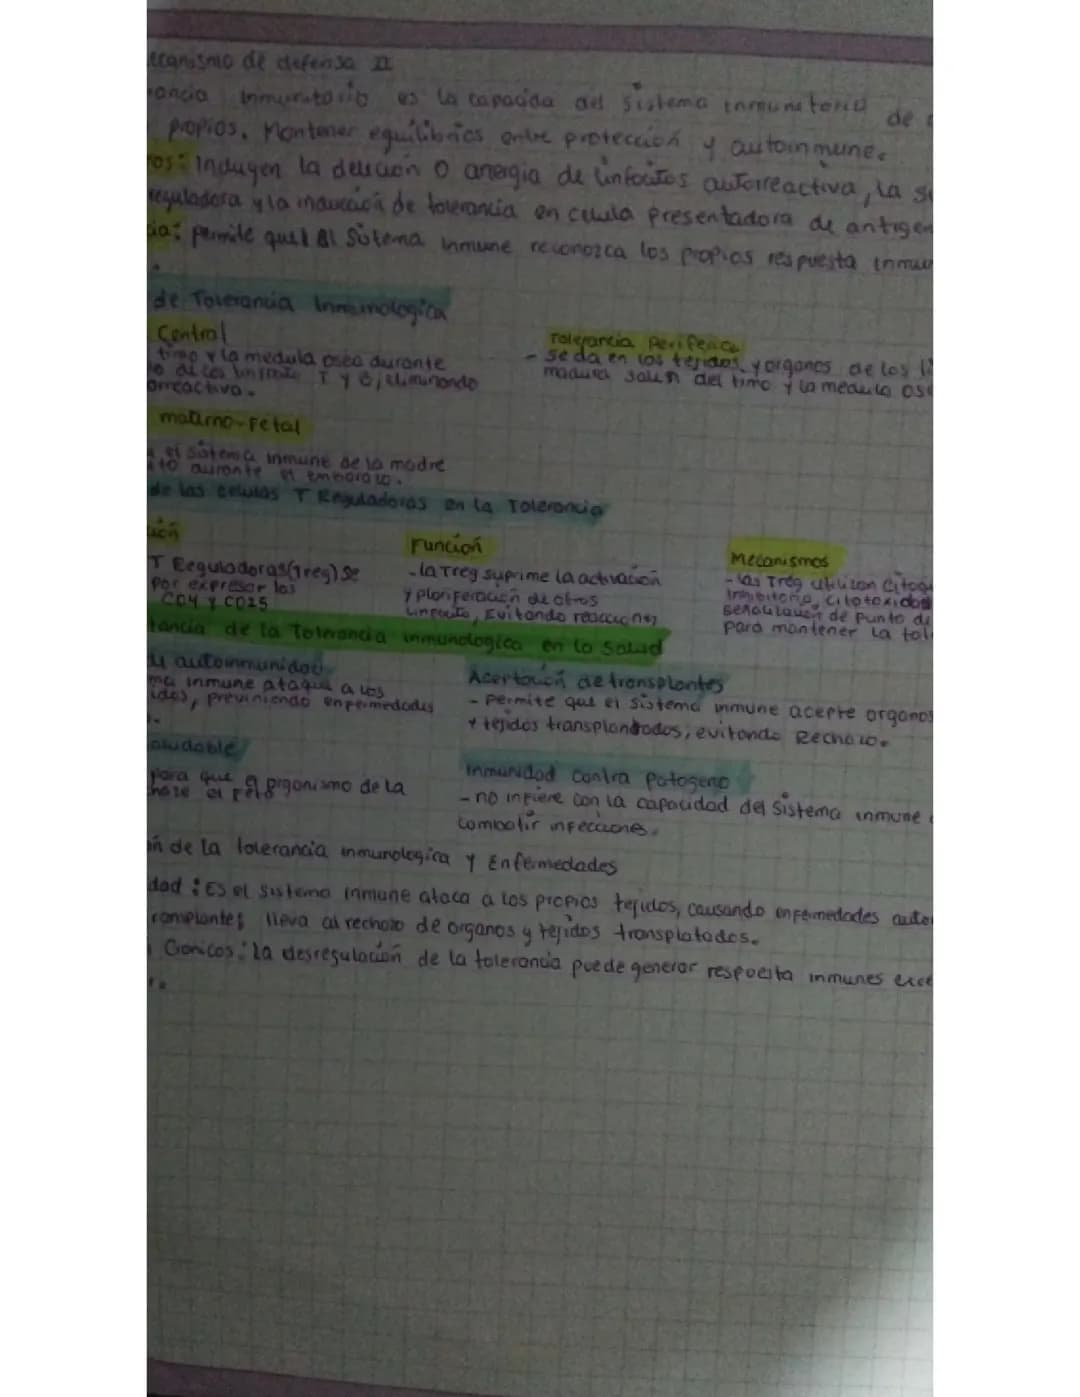 ecanismo de defensa II
rancia inmunitario es la capacida del sistema inmunitario de
propios. Mantener equilibrios entre protección y autoinmune.
ros: Induyen la deleción o anergia de linfocitos autorreactiva, la
reguladora y la inducción de tolerancia en celula presentadora de antigen
cia: permite que el sistema inmune reconozca los propios respuesta inmun
de Tolerancia Inmunologica
Central
timo y la medula osea durante
de los linfocito T y B, eliminando
orreactiva.
Tolerancia Periferica
- Se da en los tejidos y organos de los li
madura salen del timo y la medula ose
materno-Fetal
el sistema inmune de la madre
durante el embarazo.
de las celulas T Reguladoras en la Tolerancia
ición
T Reguladoras (Treg) se
por expresar los
CD4 y CD25
Función
- la Treg suprime la activación
y ploriferación de otros
Linfocito, Evitando reacciones
Mecanismos
- las Treg utilizan citoq
inhibitoria, citotoxidad
señalización de punto de
para mantener la tole
tancia de la Tolerancia inmunologica en la salud
autoinmunidad
ma inmune ataque a los
idos, previniendo enfermedades
Acertación de transplantes
- Permite que el sistema inmune acepte organos
y tejidos transplantados, evitando Rechazo.
aludable
para que el organismo de la
chaze el feto
Inmunidad contra patogeno
- no infiere con la capacidad del sistema inmune
combatir infecciones.
ón de la tolerancia inmunologica y Enfermedades
dad: Es el sistema inmune ataca a los propios tejidos, causando enfermedades auto
ramplantes lleva al rechazo de organos y tejidos transplatados.
Cronicos: la desregulación de la tolerancia puede generar respuesta inmunes exce